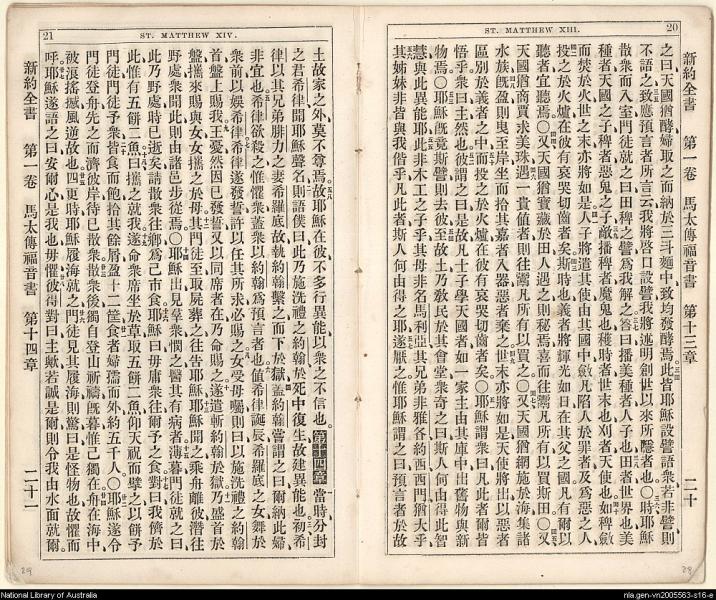 20
ST. MATTHEW XIII.
新約全書 第一卷 馬太傳福音書 第十三章 二十
之曰天國猶酵婦取之而納於三斗麵中致均發酵焉此皆耶穌設譬語衆若非譬則
不語之致應預言者所言云我將啓口設譬我將述明創世以來所隱者也〇時耶穌
散衆而入室門徒就之曰田稗之譬爲我解之答曰播美種者人子也田者世界也美
種者天國之子稗者惡鬼之子敵播稗者魔鬼也穫時者世末也刈者天使也如稗斂
而焚於火世之末亦將如是人子將遣其使由其國中斂凡陷人於罪者及爲惡之人
投之於火爐在彼有哀哭切齒者矣斯時也義者將輝光如日在其父之國凡有耳以
聽者宜聽焉〇又天國猶寶藏於田人遇之則秘焉喜而往鬻凡所有以買斯田〇又
天國猶商賈求美珠遇一貴值者則往鬻凡所有以買之〇又天國猶網施於海集諸
水族旣盈則曳至岸坐而拾其嘉者入器惡者棄之世末亦將如是天使將出以惡者
區別於義者之中而投之於火爐在彼有哀哭切齒者矣〇耶穌謂衆曰凡此者爾皆
悟乎衆曰主然也彼謂之曰是故凡士子學天國者如一家主由其庫中出舊物與新
物焉〇耶穌旣竟斯譬則去彼至故土乃教民於其會堂衆奇之曰斯人何由得此智
慧與此異能耶此非木工之子乎其母非名馬利亞其兄弟非雅各約西西門猶大乎
其姊妹非皆與我偕乎凡此者斯人何由得之耶遂厭之惟耶穌謂之曰預言者於故
21
ST. MATTHEW XIV.
土故家之外莫不尊焉故耶穌在彼不多行異能以衆之不信也第十四章當時分封
之君希律聞耶穌聲名則語僕曰此乃施洗禮之約翰於死中復生故建異能也初希
律以其兄弟腓力之妻希羅底故執約翰繫之而下於獄蓋約翰嘗謂之曰爾納此婦
非宜也希律欲殺之惟懼衆蓋衆以約翰爲預言者也值希律誕辰希羅底之女舞於
衆前以娛希律希律遂發誓許以任其所求必賜之女受母囑則曰以施洗禮之約翰
首盤上賜我王憂然因已發誓又以同席者在乃命賜之遂遣斬約翰於獄乃盛首於
盤攜來賜與女女攜之於母其門徒至取屍葬之往告耶穌耶穌聞之乘舟離彼潛往
野處衆聞此則由諸邑步從焉〇耶穌出見羣衆憫之醫其有病者薄暮門徒就之曰
此乃野處時已逝矣請散衆往鄉爲己市食耶穌曰毋庸衆往爾予之食對曰我儕於
此惟有五餅二魚曰攜之就我遂命衆席坐於草取五餅二魚仰天祝而擘之以餅予
門徒門徒予衆皆食而飽拾其餘屑盈十二筐食者婦孺而外約五千人〇耶穌遂令
門徒登舟先之而濟彼岸待已散衆散衆後獨自登山祈禱旣暮惟己獨在舟在海中
被浪搖撼風逆故也四更時耶穌履海就之門徒見其履海則驚曰是怪物也故懼而
呼耶穌遂語之曰安爾心是我也毋懼彼得對曰主歟若誠是爾則令我由水面就爾
新約全書 第一卷 馬太傳福音書 第十四章 二十一
29
National Library of Australia
nla.gen-vn2005563-s16-e